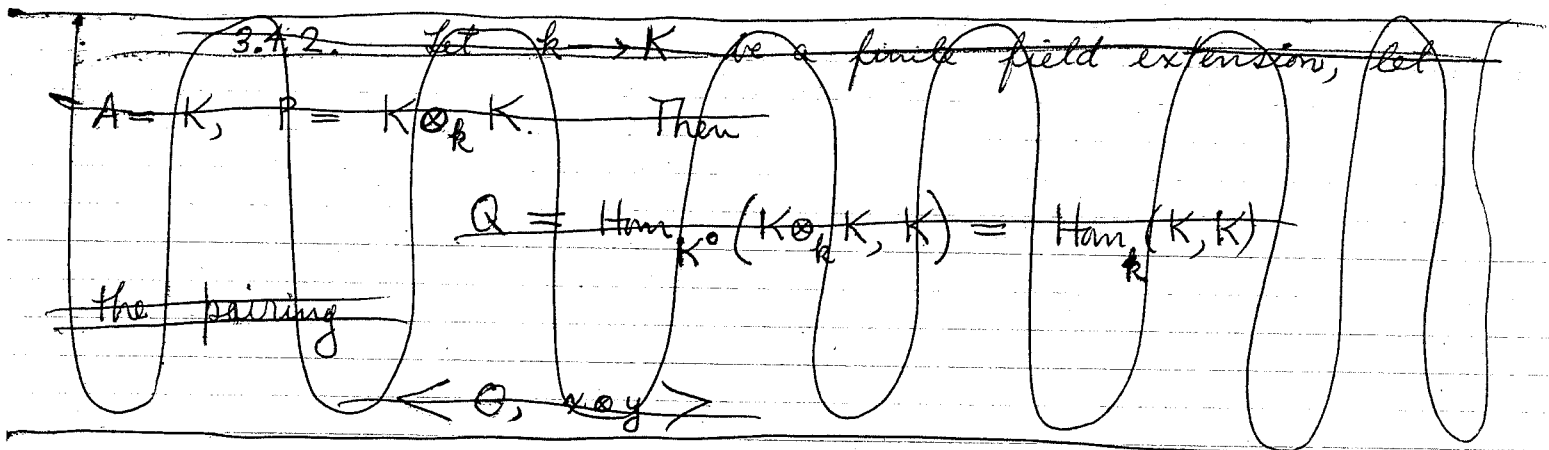 3.4.2. Let k → K be a finite field extension, let
A = K, P = K ⊗_k K. Then
Q = Hom_{K°}(K ⊗_k K, K) = Hom_k(K, K)
the pairing
< θ, x ⊗ y >